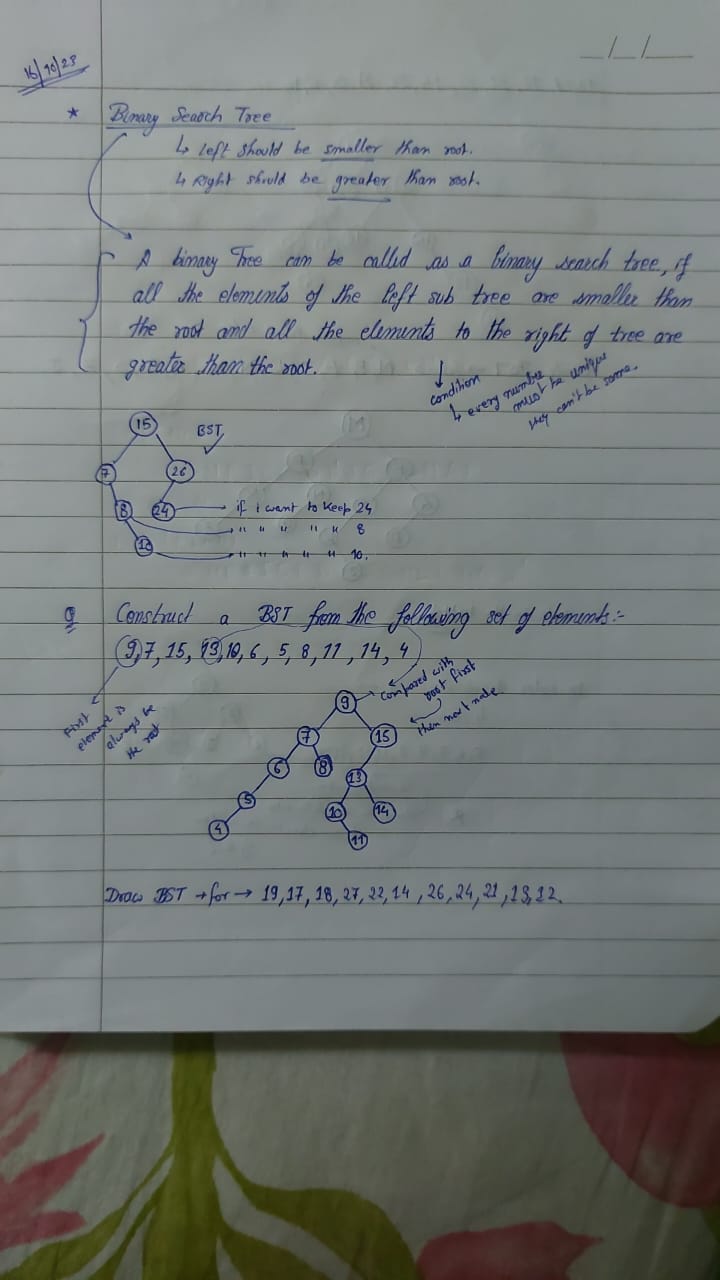 16/10/23
_/_/_
* Binary Search Tree
↳ Left should be smaller than root.
↳ Right should be greater than root.
A binary Tree can be called as a binary search tree, if
all the elements of the left sub tree are smaller than
the root and all the elements to the right of tree are
greater than the root.
condition
↳ every number
must be unique
they can't be same.
15
BST ✓
7 26
8 24 if I want to keep 24
" " " " " 8
10 " " " " " 10.
Q Construct a BST from the following set of elements:-
9, 7, 15, 13, 10, 6, 5, 8, 11, 14, 4
First
element is
always be
the root
compared with
root first
then next node
9
7 15
6 8 13
5 10 14
4 11
Draw BST → for → 19, 17, 18, 27, 22, 14, 26, 24, 21, 13, 12.